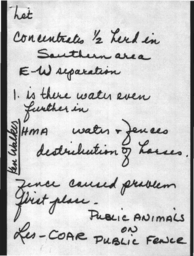 het
concentrates 1/2 herd in
Southern area
E-W separation
1. is there water even
further in
HMA water & fences
distribution of horses.
Ken Walker
Fence caused problem
first place.
PUBLIC ANIMALS
ON
PUBLIC FENCE
Les-COAR